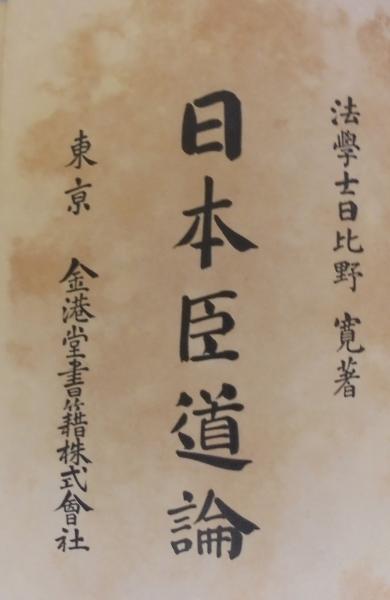 法學士日比野寛著
日本臣道論
東亰 金港堂書籍株式會社